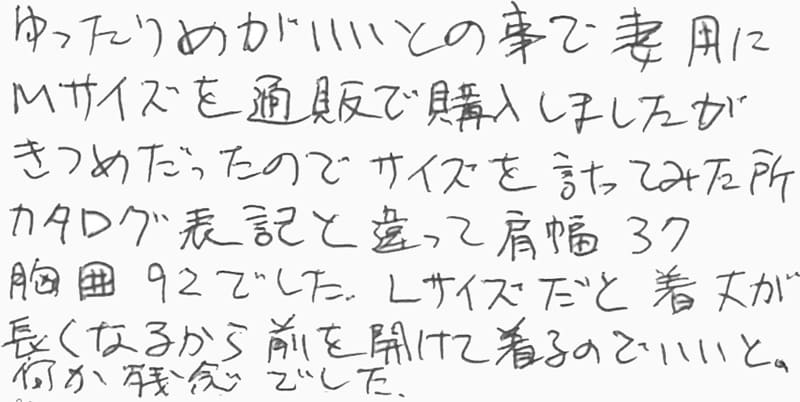 ゆったりめがいいとの事で妻用に
Mサイズを通販で購入しましたが
きつめだったのでサイズを計ってみた所
カタログ表記と違って肩幅37
胸囲92でした。Lサイズだと着丈が
長くなるから前を開けて着るのでいいと。
何か残念でした。